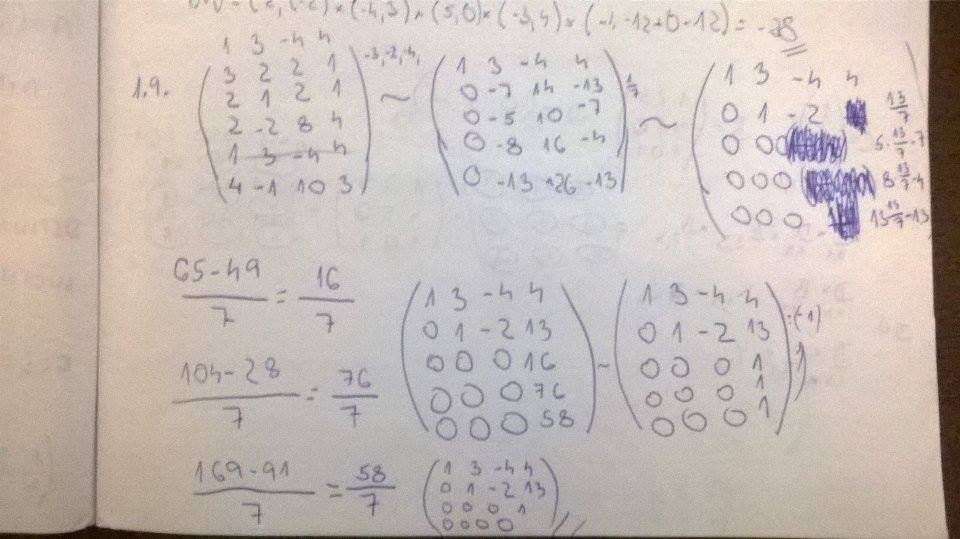 = (2, (-2) × (-4, 3) × (5, 0) × (-3, 4) = (-1, -12+0+12) = -28
1.9.
1 3 -4 4
3 2 2 1
2 1 2 1
2 -2 8 4
1 3 -4 4
4 -1 10 3
-3,-2,-4,
~
1 3 -4 4
0 -7 14 -13
0 -5 10 -7
0 -8 16 -4
0 -13 +26 -13
1/7
~
1 3 -4 4
0 1 -2 13/7
0 0 0 5·13/7-7
0 0 0 8 13/7-4
0 0 0 13 13/7-13
65-49/7 = 16/7
104-28/7 = 76/7
169-91/7 = 58/7
1 3 -4 4
0 1 -2 13
0 0 0 16
0 0 0 76
0 0 0 58
~
1 3 -4 4
0 1 -2 13
0 0 0 1
0 0 0 1
0 0 0 1
·(-1)
1 3 -4 4
0 1 -2 13
0 0 0 1
0 0 0 0